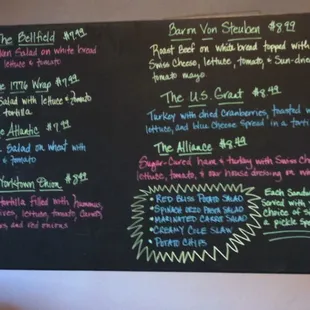 The Bellfield $7.99
Salad on white bread
lettuce & tomato
The 1776 Wrap $7.99
Salad with lettuce & tomato
tortilla
Atlantic $7.99
Salad on wheat with
& tomato
Yorktown Union $8.99
tortilla filled with hummus,
lettuce, tomato,
and red onions
Baron Von Steuben $8.99
Roast Beef on white bread topped with
Swiss Cheese, lettuce, tomato, & Sun-dried
tomato mayo.
The U.S. Grant $8.99
Turkey with dried cranberries, toasted
lettuce, and blue cheese spread in a
The Alliance $8.99
Sugar-Cured ham & turkey with Swiss
lettuce, tomato, & our house dressing on
• Red Bliss Potato Salad
• Spinach Orzo Pasta Salad
• Marinated Carrot Salad
• Creamy Cole Slaw
• Potato Chips
Each
served with
choice of
a pickle